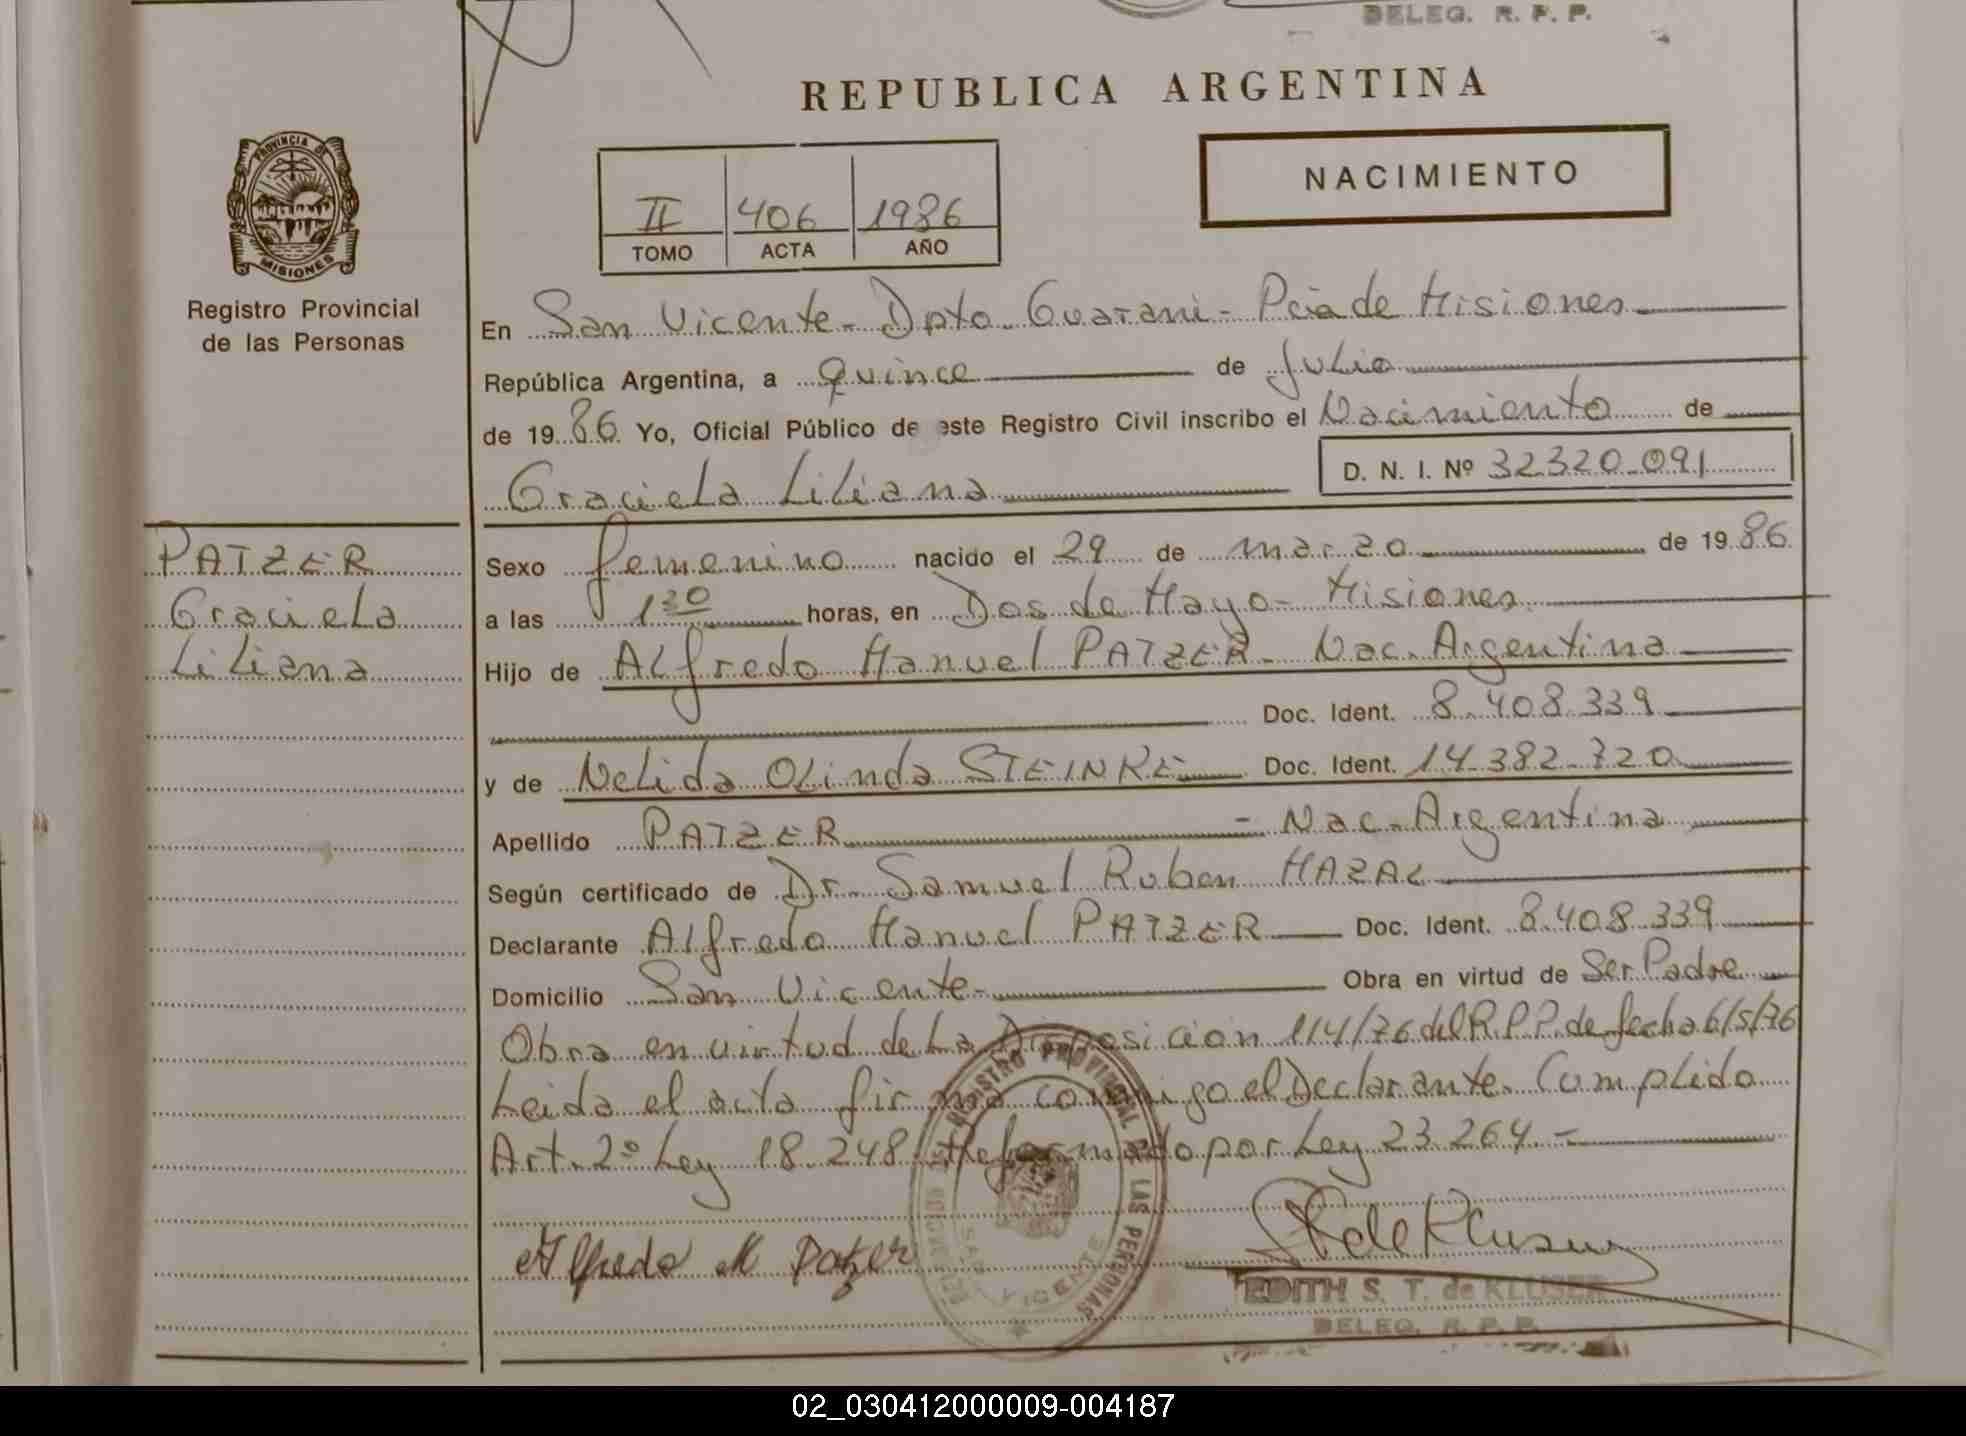 DELEG. R. P. P.
REPUBLICA ARGENTINA
NACIMIENTO
II 406 1986
TOMO ACTA AÑO
PROVINCIA DE
MISIONES
Registro Provincial
de las Personas
En San Vicente - Dpto. Guarani - Pcia de Misiones
República Argentina, a Quince de Julio
de 1986 Yo, Oficial Público de este Registro Civil inscribo el Nacimiento de
Graciela Liliana D. N. I. Nº 32320.091
PATZER
Graciela
Liliana
Sexo femenino nacido el 29 de marzo de 1986
a las 1 30 horas, en Dos de Mayo - Misiones
Hijo de Alfredo Manuel PATZER - Nac. Argentina
Doc. Ident. 8.408.339
y de Nelida Olinda STEINKE Doc. Ident. 14.382.720
Apellido PATZER - Nac. Argentina
Según certificado de Dr. Samuel Ruben MAZAL
Declarante Alfredo Manuel PATZER Doc. Ident. 8.408.339
Domicilio San Vicente - Obra en virtud de Ser Padre
Obra en virtud de La Disposicion 114/76 del R.P.P. de fecha 6/5/76
Leida el acta firma conmigo el Declarante. Cumplido
Art. 2º Ley 18.248 Reformado por Ley 23.264. -
REGISTRO PROVINCIAL DE LAS PERSONAS
SAN VICENTE
Alfredo M Patzer
EDITH S. T. de KLUSER
DELEG. R. P. P.
02_030412000009-004187